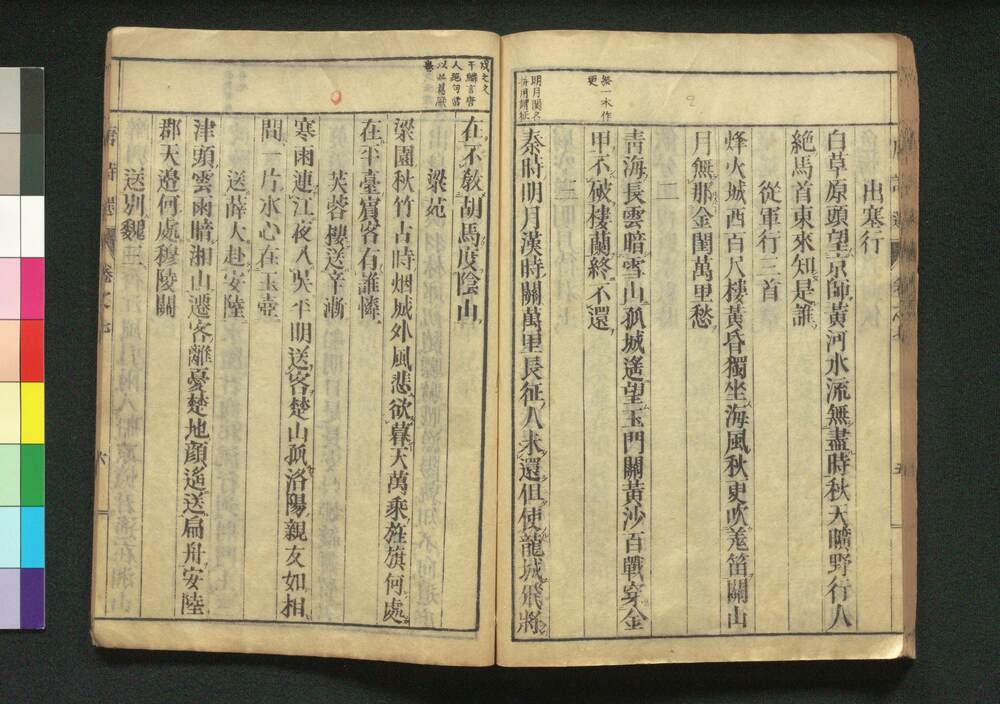 出塞行
白草原頭望京師黃河水流無盡時秋天曠野行人
絶馬首東來知是誰
從軍行三首
烽火城西百尺樓黃昏獨坐海風秋更吹羗笛關山
月無那金閨萬里愁
二
青海長雲暗雪山孤城遙望玉門關黃沙百戰穿金
甲不破樓蘭終不還
三
秦時明月漢時關萬里長征人未還但使龍城飛將
五
在不敎胡馬度陰山
梁苑
梁園秋竹古時烟城外風悲欲暮天萬乘旌旗何處
在平臺賓客有誰憐
芙蓉樓送辛漸
寒雨連江夜入吳平明送客楚山孤洛陽親友如相
問一片氷心在玉壺
送薛大赴安陸
津頭雲雨暗湘山遷客離憂楚地顔遙送扁舟安陸
郡天邊何處穆陵關
送別魏三
唐詩選
六